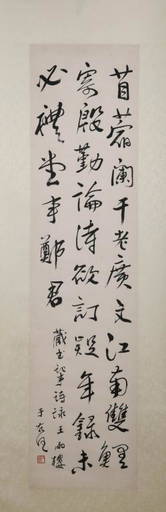 苜蓿闌干老廣文江南雙鯉
寄殷勤論詩欲訂疑年錄未
必禮堂事鄭君
藏書記事詩詠王雨樓
于右任